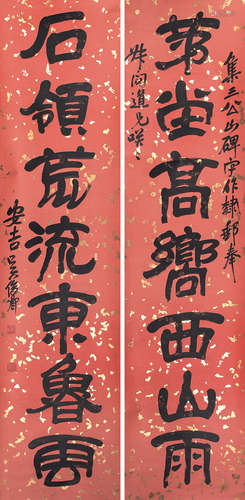 集三公山碑字作隸郵奉
道兄咲
茅堂高嚮西山雨
石領荒流東魯雲
安吉吳俊卿